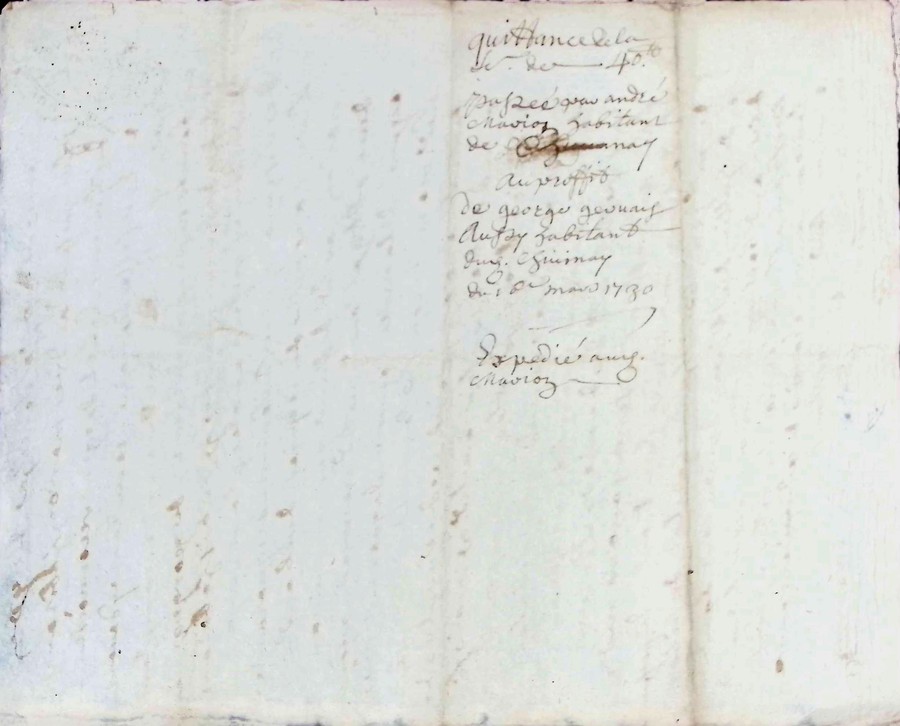 quittance de la
Se. de 40.lt
passeé par andré
Marion habitant
de
Au proffit
de george gervais
Aussy habitant
dud.
du 16e mars 1730
Expedié aud.
Marion